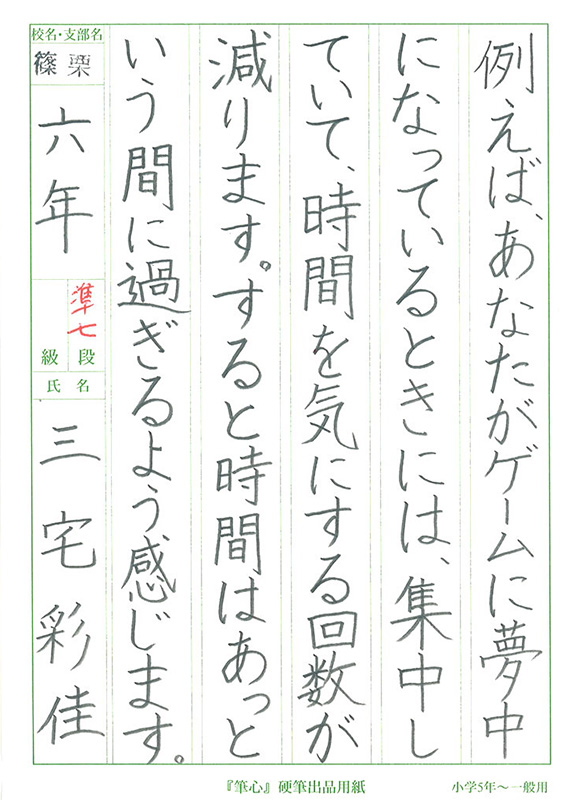 例えば、あなたがゲームに夢中
になっているときには、集中し
ていて、時間を気にする回数が
減ります。すると時間はあっと
いう間に過ぎるよう感じます。
校名・支部名
篠栗
六年
準七
段
級
氏名
三宅彩佳
『筆心』硬筆出品用紙
小学5年～一般用